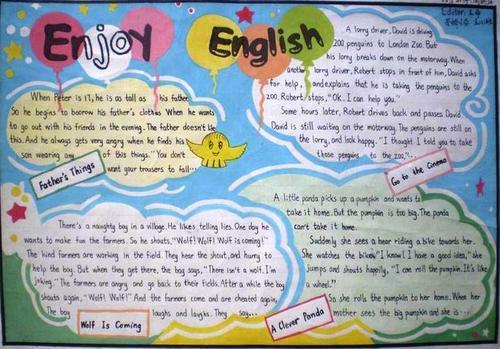 Enjoy English
Editor:
When Peter is 17, he is as tall as his father.
So he begins to boorow his father's clothes When he wants
to go out with his friends in the evening. The father doesn't like
this. And he always gets very angry when he finds his
son wearing any of this things." You don't
want your trousers to fall...
Father's Things
A lorry driver, David is driving
200 penguins to London Zoo. But
his lorry breaks down on the motorway. When
another lorry driver, Robert stops in front of him, David asks
for help, and explains that he is taking the penguins to the
zoo. Robert stops, "OK. I can help you."
Some hours later, Robert drives back and passes David
David is still waiting on the motorway. The penguins are still on
the lorry, and look happy. "I thought I told you to take
those penguins to the zoo."...
Go to the Cinema
There's a naughty boy in a village. He likes telling lies. One day he
wants to make fun the farmers. So he shouts, "Wolf! Wolf! Wolf is coming!"
The kind farmers are working in the field. They hear the shout, and hurry to
help the boy. But when they get there, the boy says, "There isn't a wolf. I'm
joking." The farmers are angry and go back to their fields. After a while the boy
shouts again, "Wolf! Wolf!" And the farmers come and are cheated again,
The boy laughs and laughs. They say...
Wolf Is Coming
A little panda picks up a pumpkin and wants to
take it home. But the pumpkin is too big. The panda
can't take it home.
Suddenly she sees a bear riding a bike towards her.
She watches the bike. "I know! I have a good idea," she
jumps and shouts happily, "I can roll the pumpkin. It's like
a wheel."
So she rolls the pumpkin to her home. When her
mother sees the big pumpkin and she is...
A Clever Panda